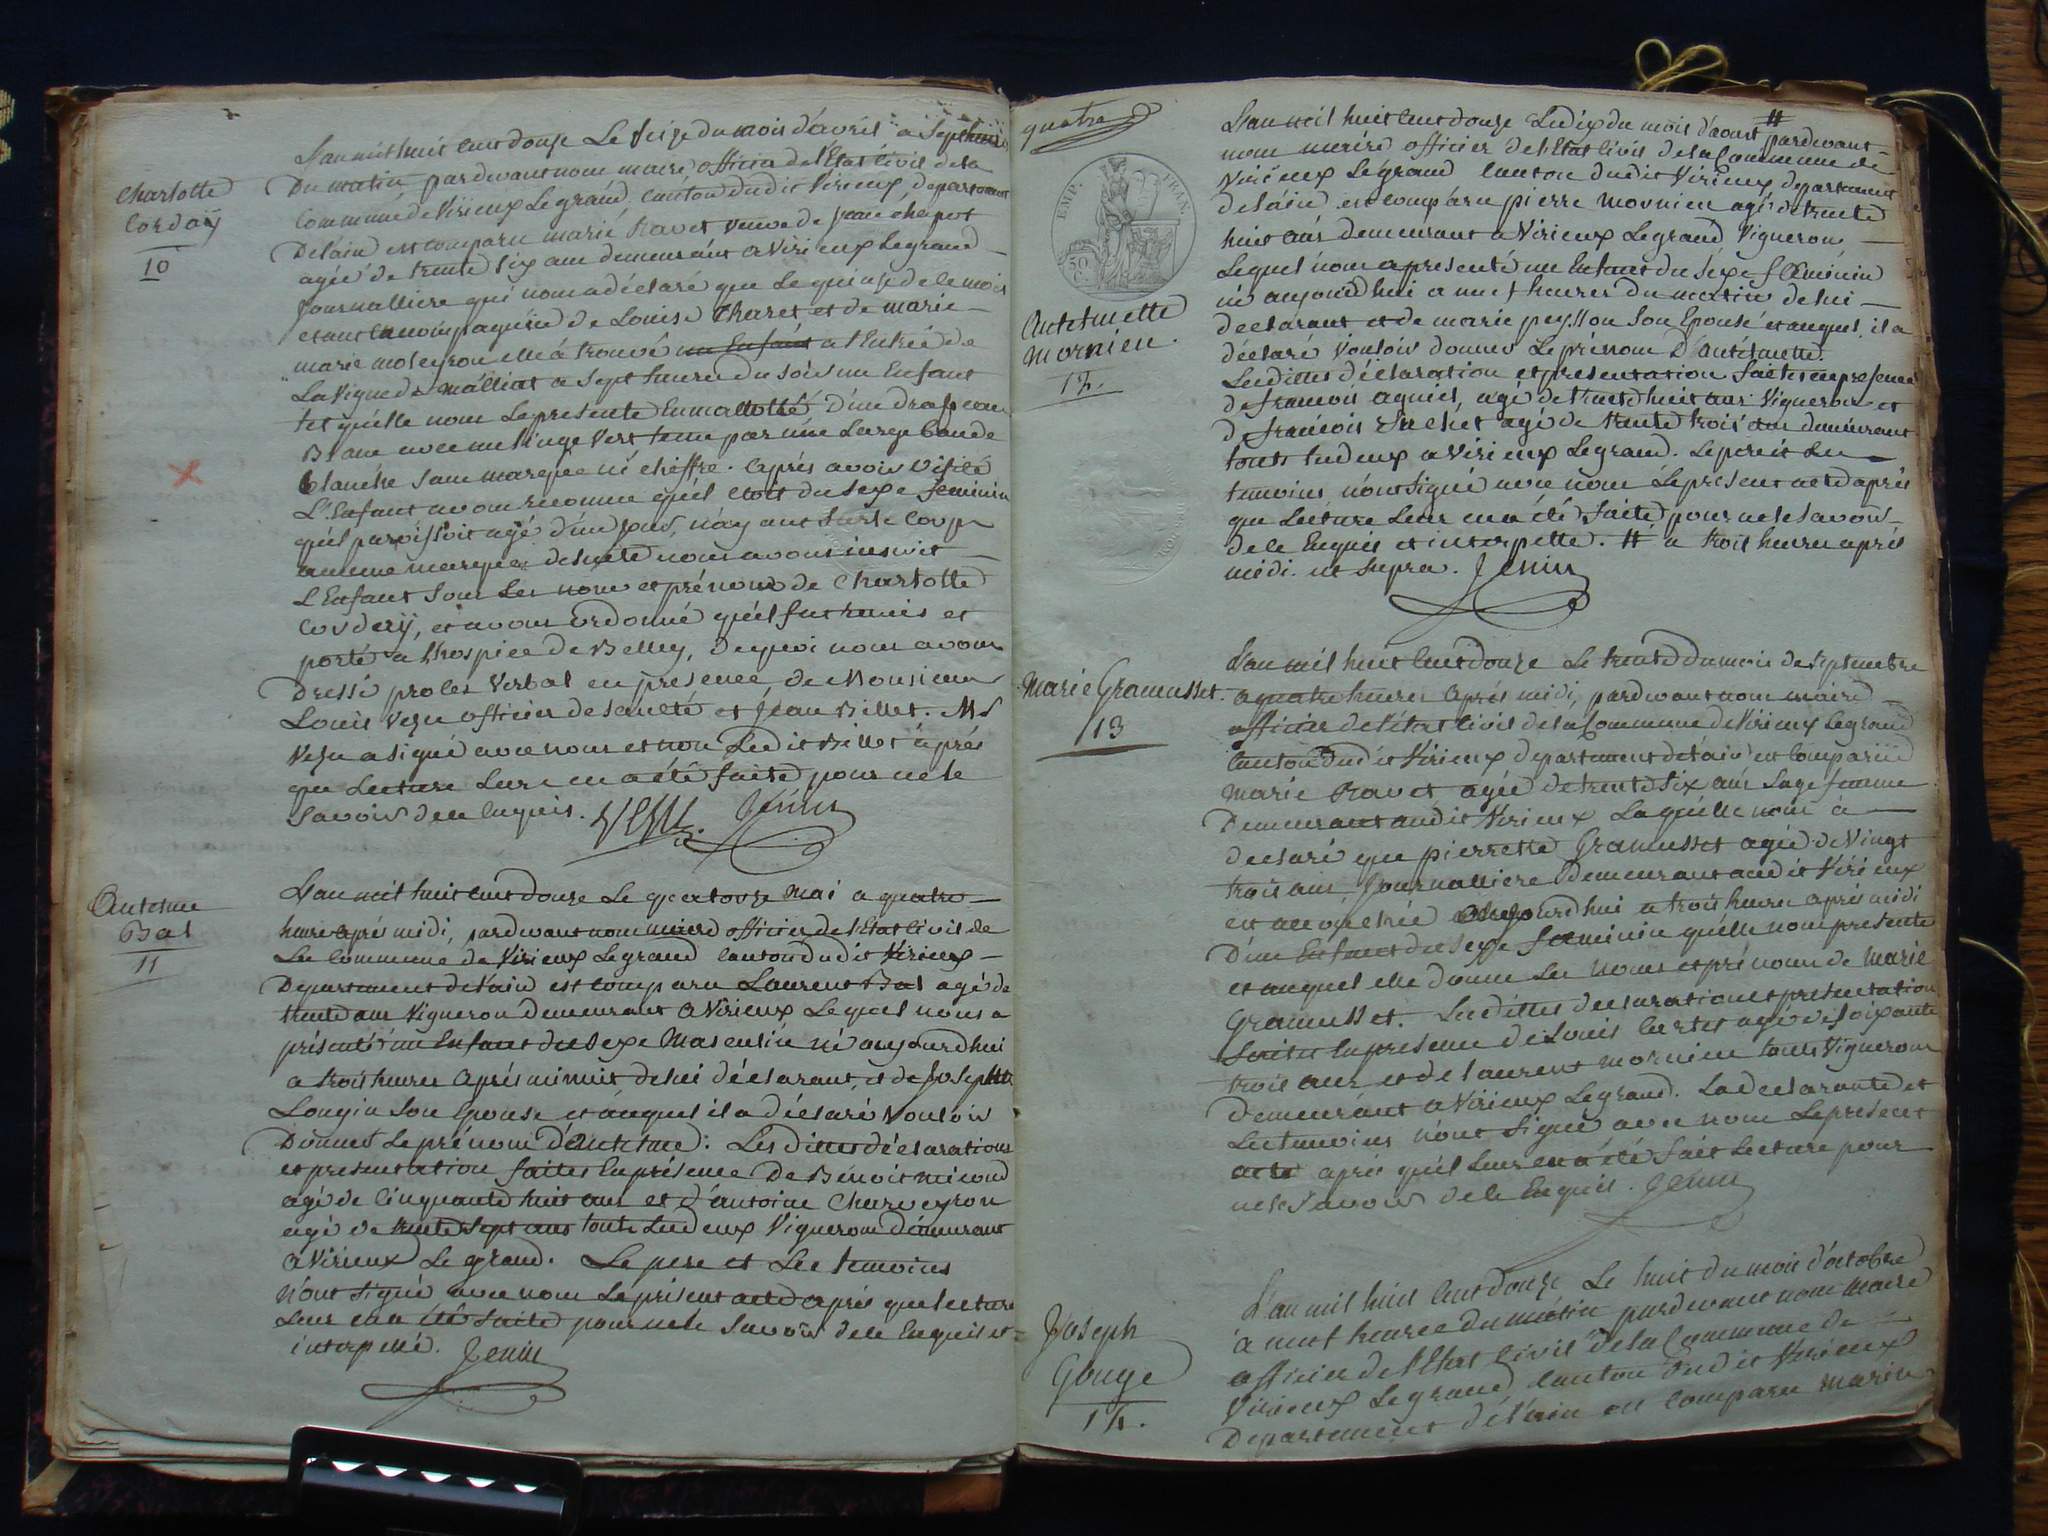 Charlotte
Corday
10
L'an mil huit cent douze Le seize du mois d'avril a sept heures
Du matin pardevant nous maire, officier de l'Etat Civil de la
Commune de Virieux Le grand, Canton dudit Virieux, departement
De lain est comparu marie Ravet veuve de jean
agée de trente six ans demeurant a Virieux Legrand
journalliere qui nous a déclaré que Le quinze de le mois
etant en compagnie de Louise Charet et de marie
marie moleyron elle á trouvé un Enfant a l'Entrée de
La Vigne de Malliat a sept heures du soir un Enfant
tel quélle nous Le presente Enmallotté D'un drapeau
Blanc avec un linge Vert tenu par une Large bande
blanche sans marque ni chiffre. Aprés avoir Visité
L'Enfant avons reconnu quél etoit du sexe feminin
quél paroissoit agé d'un jour, n'ayant sur le Corps
aucune marque. de suite nous avons inscrit
L'Enfant sous Les nom et prénoms de Charlotte
Cordeÿ, et avons ordonné quél fut remis et
porté a l'hospice de Belley, De quoi nous avons
Dressé procés Verbal en présence de Monsieur
Louis Vezu officier de santé et Jean Billet. Mr
Vezu a signé avec nous et non Ledit Billet aprés
que Lecture Leur en a été faite pour ne le
savoir de ce Enquis. Vezu Jenin
Antelme
Bal
11
L'an mil huit cent douze Le quatorze Mai a quatre
heure aprés midi, pardevant nous maire officier de l'Etat Civil de
La Commune de Virieux Legrand Canton dudit Virieux
Departement de l'ain est comparu Laurent Bal agé de
trente ans Vigneron demeurant a Virieux Lequel nous a
présenté un Enfant du sexe Masculin né aujourdhui
a trois heures aprés minuit de lui déclarant, et de Josephte
Longin son Epouse et auquel il a déclaré vouloir
Donner le prénom d'Antelme. Les dittes déclarations
et presentation faites En présence De Benoit micoud
agé de Cinquante huit ans et d'antoine Charveyron
agé de trente sept ans touts Les deux Vignerons démeurant
a Virieux Le grand. Le pere et Les temoins
N'ont signé avec nous Le présent acte aprés que lecture
Leur en a été faite pour ne le savoir de ce Enquis et
interpellé. Jenin
quatre
EMP. FRAN.
50 C.
Antelmette
Mornieu
12.
L'an mil huit cent douze Le dix du mois d'aoust # pardevant
nous maire officier de l'Etat Civil de la Commune de
Virieux Legrand Canton dudit Virieux, departement
de l'ain est comparu pierre mornieu agé de trente
huit ans demeurant a Virieux Legrand Vigneron
Lequel nous a presenté un Enfant du sexe feminin
né aujourdhui a neuf heures du matin de lui
déclarant et de marie peysson son Epouse et auquel il a
déclaré Vouloir donner Le prénom d'Antelmette.
Les dittes déclaration et presentation faites en presence
de francois aguiet, agé de trente huit ans Vigneron et
de francois agé de trente trois ans demeurant
touts les deux a Virieux Legrand. Le pere et Les
temoins n'ont signé avec nous Le present acte aprés
que Lecture Leur en a été faite pour ne le savoir
de le Enquis et interpellé. # a trois heures aprés
midi. ut supra. Jenin
Marie Gramusset
13
L'an mil huit Cent douze Le trente du mois de septembre
a quatre heures Aprés midi, pardevant nous maire
officier de l'état Civil de la Commune de Virieux Legrand
Canton dudit Virieux departement de l'ain est comparüe
Marie Ravet agée de trente six ans sage femme
Demeurant audit Virieux Laquélle nous a
declaré que pierrette Gramusset agée de Vingt
trois ans journalliere Demeurant audit Virieux
est accouchée aujourdhui a trois heures aprés midi
D'un Enfant du sexe feminin quélle nous presente
et auquel elle donne Les Noms et prénoms de Marie
Gramusset. Les dittes declaration et presentation
faites En presence de Louis agé de soixante
trois ans et de laurent mornieu touts Vignerons
demeurant a Virieux Legrand. La declarante et
Les temoins n'ont signé avec nous Le present
acte aprés quél Leur en a été fait Lecture pour
ne le savoir de le Enquis. Jenin
Joseph
Gouge
14.
L'an mil huit Cent douze Le huit du mois d'octobre
à neuf heures du matin pardevant nous Maire
officier de l'Etat Civil de la Commune de
Virieux Legrand, Canton dudit Virieux
Departement de l'ain est Comparu Marie